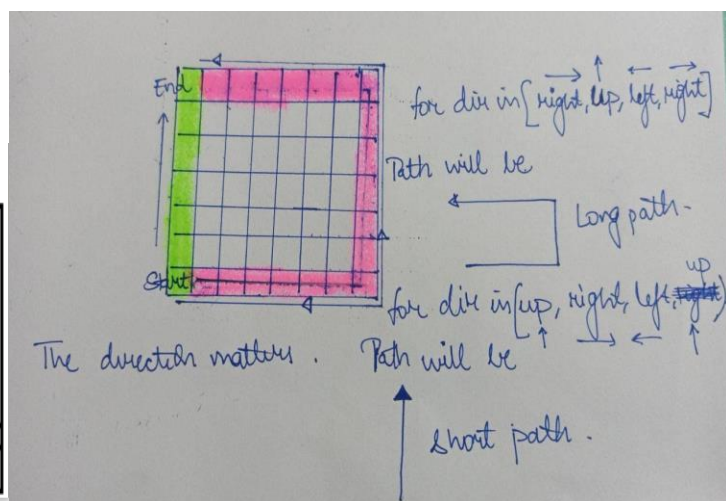 End
for dir in [right, up, left, right]
Path will be
Long path.
Start
up
for dir in [up, right, left, right)
The direction matters. Path will be
short path.